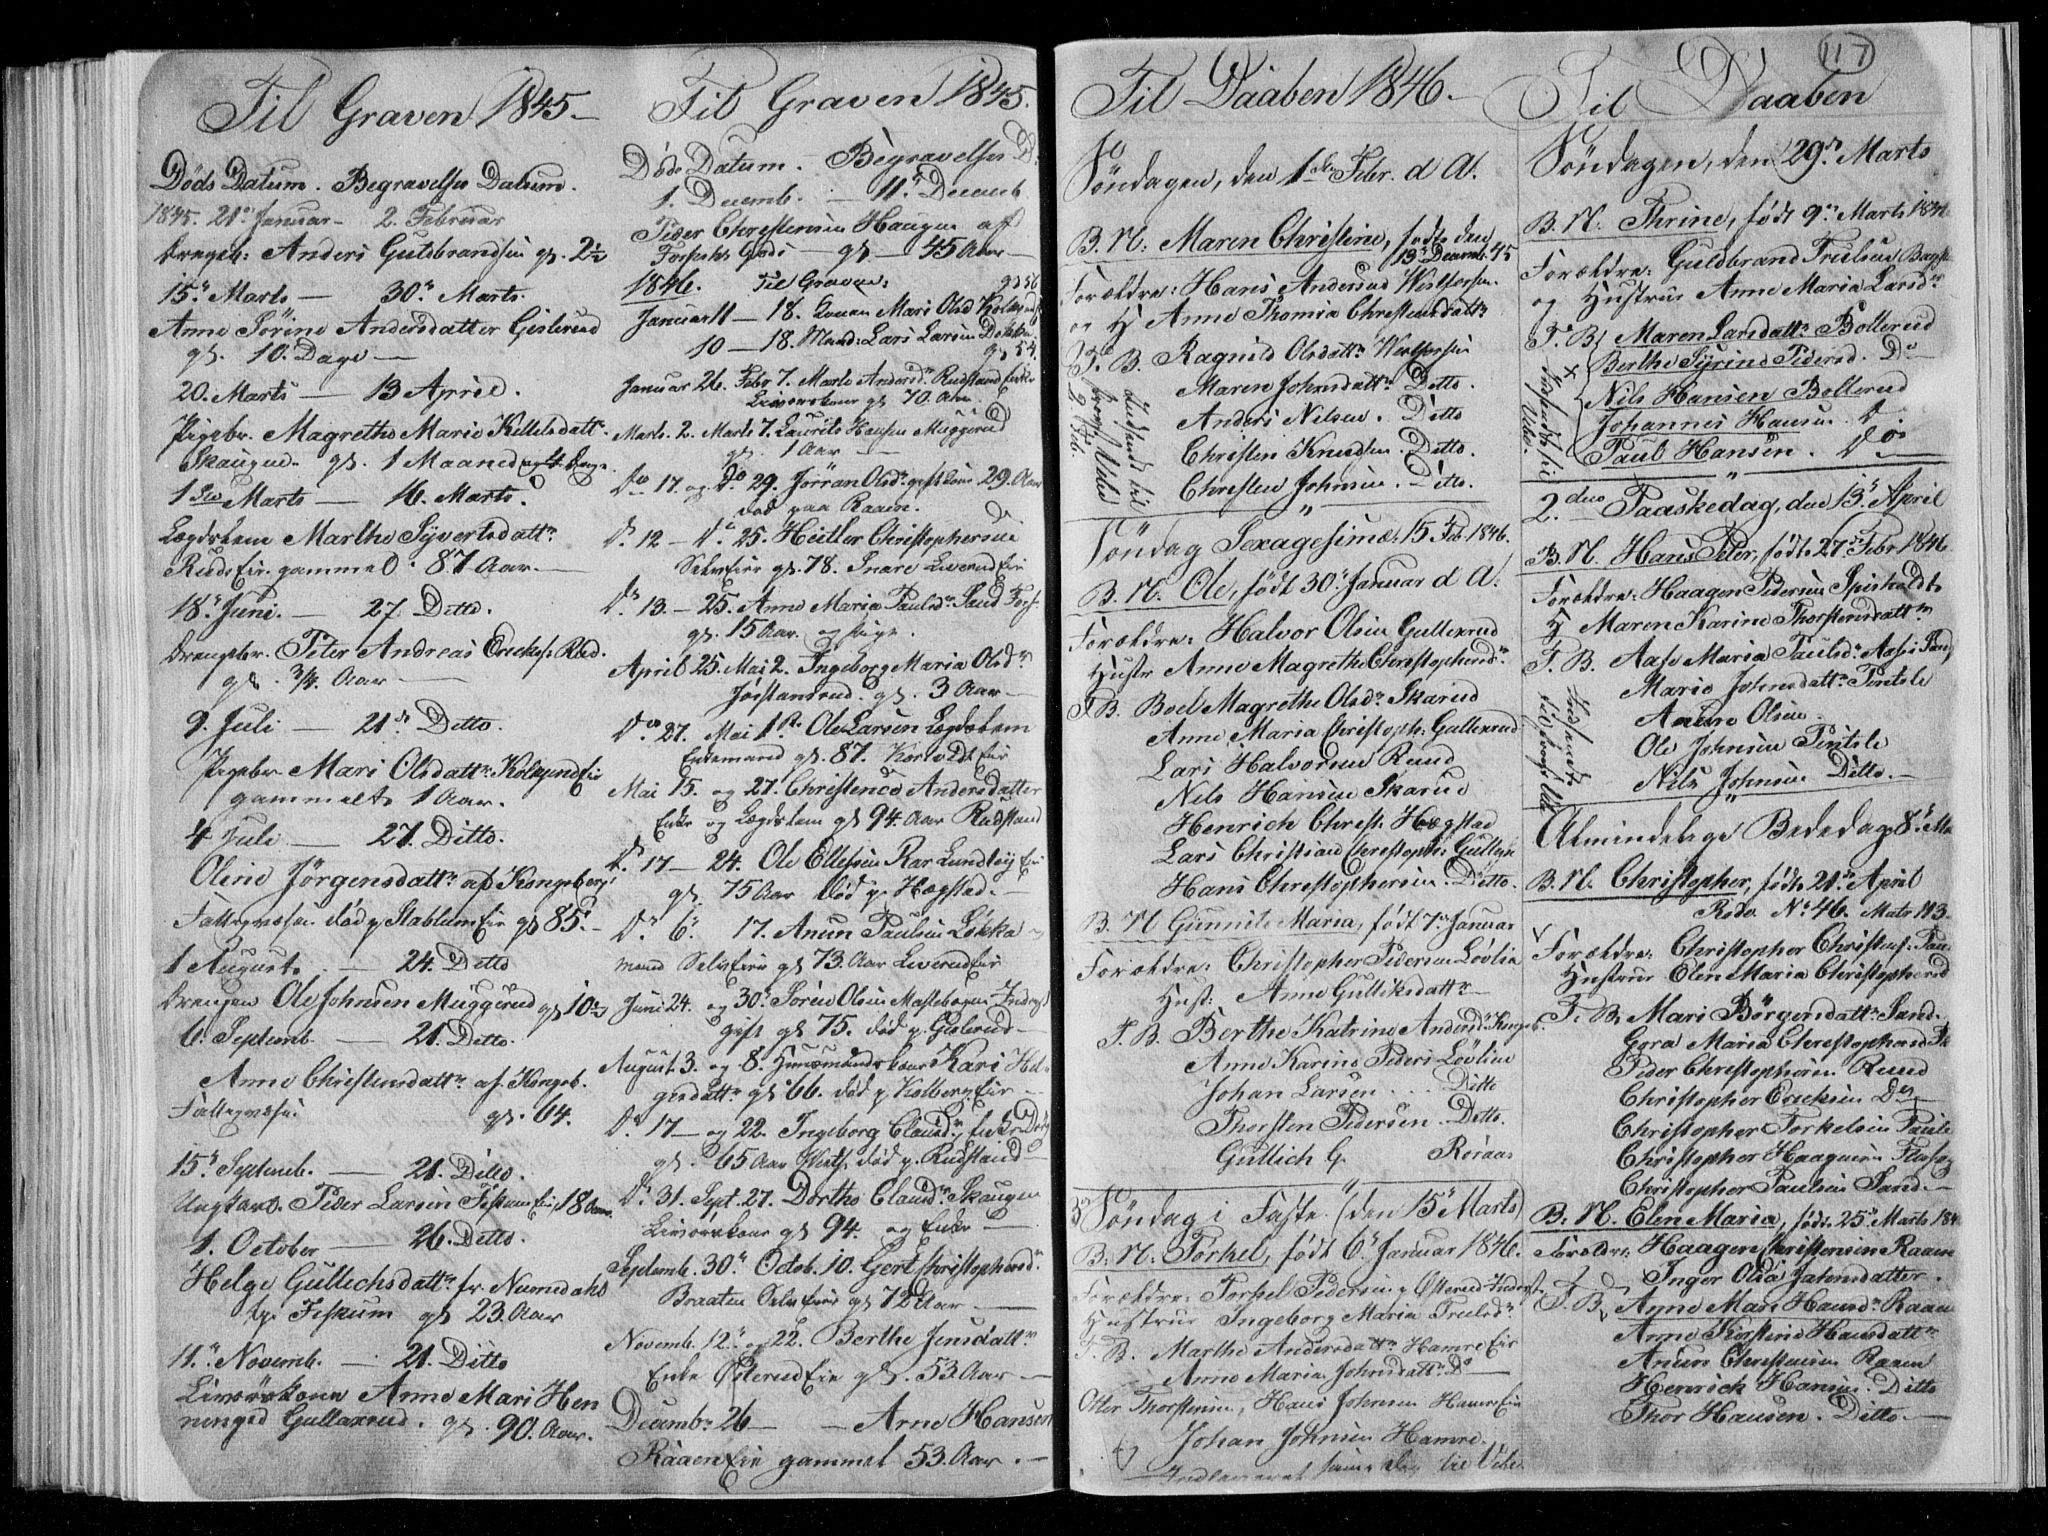 Til Graven 1845.
Döds Datum. Begravelses Datum.
1845. 21 Januar — 2. Februar
Drengeb: Anders Guldbrandsen gl. 2½
15. Marts — 30. Marts.
Anne Sörine Andersdatter Gislerud
gl. 10. Dage —
20. Marts — 13 April.
Pigebr. Magrethe Marie Kittelsdattr.
Skaugen. gl. 1 Maaned
1ste Marts — 16. Marts.
Lægdslem Marthe Syvertsdattr
Ruds Eie. gammel 87 Aar. —
18. Juni. — 27. Ditto.
Drengebr. Peter Andreas Ericks. Rud.
gl. 3/4. Aar —
9. Juli — 21de Ditto
Pigebr. Mari Olsdattr. Eie
gammel 1 Aar.
4 Juli — 27. Ditto.
Oline Jörgensdattr af Kongsberg
Fattigvæsen död p. Stablum Eie gl 85. —
1 August — 24. Ditto
Drengen Ole Johnsen Muggerud gl 10
6. Septemb. — 21. Ditto.
Anne Christensdattr. af Kongsb.
Fattigvæsen gl. 64.
15. Septemb. — 21. Ditto.
Ungkarl. Peder Larsen Eie 18 Aar.
1. October — 26. Ditto.
Helge Gullechsdattr. fr. Numedahl
p. Fiskum gl 23. Aar
11. Novemb. — 21. Ditto
Anne Mari Hen
ninged Gullaxrud. gl. 90. Aar.
Til Graven 1845.
Döds Datum. — Begravelses D.
1. Decemb. — 11. Decemb
Peder Christensen Haugen af
Fossesholms Gods — gl — 45 Aar —
1846. Til Graven: gl 56
Januar 11 — 18. Konen Mari Olsd
10 — 18. Mand: Lars Larsen gl 54.
Januar 26. Febr 7. Marte Andersdr. Rudstand Enke
gl 70. Aar.
Marts. 2. Marts 7. Laurits Hansen Muggerud
gl. 1 Aar —
Do 17. og Do 29. Jörran Olsdr. gift Kone 29. Aar
död paa Raaen.
Do. 12 — Do 25. Christophersen
Selveier gl. 78. Eie
Do. 13. — 25. Anne Maria Paulsdr. Sand
gl. 15 Aar. og pige.
April 25. Mai 2. Ingeborg Maria Olsdr
gl. 3 Aar —
Do 27. Mai 1ste. Ole Larsen Lægdslem
Enkemand gl. 87. Eie
Mai 15. og 27. Christence Andersdatter
Enke og Lægdslem gl 94. Aar Rudstand
Do. 17 — 24. Ole Ellefsen Eie
gl. 75 Aar död p. Hægstad. —
Do. 6. 17. Anun Paulsen Løkka
mand Selveier gl 73. Aar Eie
Juni 24. og 30. Sören Olsen
gift gl 75. död p. Gislerud —
August 3. og 8. Huusmandskone Kari Hel-
gesdattr gl 66. död p. Kolberg Eie —
Do. 17 — og 22. Ingeborg Clausdr. Enke
gl. 65 Aar død p. Rudstand —
Do. 31. Sept. 27. Dorthe Clausdr. Skaugen
gl 94. og Enke —
Septemb. 30. Octob. 10. Gert Christophersdr.
Braaten Selveier gl 72 Aar —
Novemb. 12. og 22. Berthe Jensdattr
Enke Østerud Eie gl. 53. Aar —
Decembr 26 — — Arne Hansen
Raaen Eie gammel 53. Aar. —
117
Til Daaben 1846. —
Söndagen, den 1de Febr. d A.
B. N: Maren Christine, født den
13. Decemb. 45
Forældre: Hans Andersen Vestfossen
og H Anne Thomia Christensdattr
F. B. Ragnild Olsdattr. Vestfossen
Maren Johnsdattr. Ditto.
Anders Nilsen. Ditto
Christen Knudsen. Ditto.
Christen Johnsen. Ditto.
Indsendt til
Söndag Sexagesimæ. 15. Feb. 1846.
B. N. Ole, født 30. Januar d A.
Forældre: Halvor Olsen Gullexrud
Hustr Anne Magrethe Christophersdr.
F B. Boel Magrethe Olsdr. Skarud
Anne Maria Christoph: Gullexrud
Lars Halvorsen Ruud
Nils Hansen Skarud
Henrich Christ. Hægstad
Lars Christian Christophs. Gullexr
Hans Christophersen. Ditto.
B. N Gunnild Maria, født 7. Januar
Forældre: Christopher Pedersen Løvlia
Hust: Anne Gulliksdattr —
F. B. Berthe Katrine Andersdr Kongsb.
Anne Karine Peders Løvlien
Johan Larsen . . Ditto
Thorsten Pedersen. Ditto.
Gullich G. Roraas
Söndag i Faste. (den 15 Marts)
B. N. Torkel, født 6. Januar 1846.
Forældre: Torkel Pedersen p Østerud
Hustrue Ingeborg Maria Truelsdr.
F. B. Marthe Andersdattr. Hamre Eie
Anne Maria Johnsdattr. Do —
Otter Thorstensen, Hans Johnsen Hamre Eie
og Johan Johnsen Hamre.
Indleveret samme dag til
Til Daaben
Söndagen, den 29. Marts
B. N. Thrine, født 9. Marts 1846
Forældre: Guldbrand Truelsen
og Hustrue Anne Maria Larsdr
F. B. Maren Larsdattr. Bollerud
Berthe Syrine Pedersd. Do
Nils Hansen Bollerud
Johannes Hansen. D
Paul Hansen. Do. —
Indsendt til
2. den Paaskedag, den 13. April
B. N. Hans Peter, født 27. Febr 1846
Forældre: Haagen Pedersen
H Maren Karine Thorstensdattr
F. B. Aase Maria Paulsdr.
Marie Johnsdattr. Tintele
Anun Olsen
Ole Johnsen Tintele
Nils Johnsen Ditto. —
Indsendt
Almindelige Bededag 8. Ma
B. N. Christopher, født 21. April
No 46. Matr 113.
Forældre: Christopher Christens.
Hustrue Elen Maria Christophersd
F. B. Mari Börgersdattr. Sand.
Gora Maria Christophersd
Peder Christophersen Ruud
Christopher Ericksen Do
Christopher Torkelsen
Christopher Haagensen
Christopher Paulsen Sand. —
B. N. Elen Maria, født. 25. Marts 184
Forældre: Haagen Christensen Raaen
Inger Olea Jahnsdatter.
F. B. Anne Mari Hansdr. Raaen
Anne Kirstine Hansdattr.
Anun Christensen Raaen
Henrick Hansen. Ditto
Thor Hansen. Ditto. —